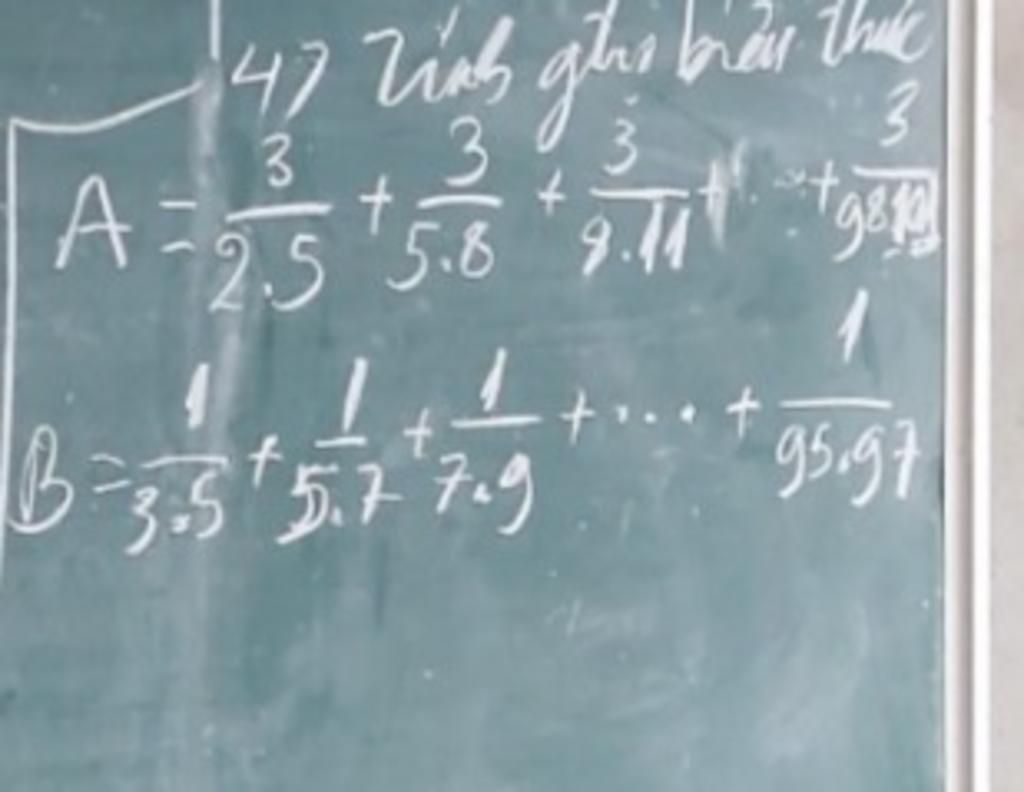 47 Tính giá trị biểu thức
A = 3/2.5 + 3/5.8 + 3/8.11 + ... + 3/98.101
B = 1/3.5 + 1/5.7 + 1/7.9 + ... + 1/95.97